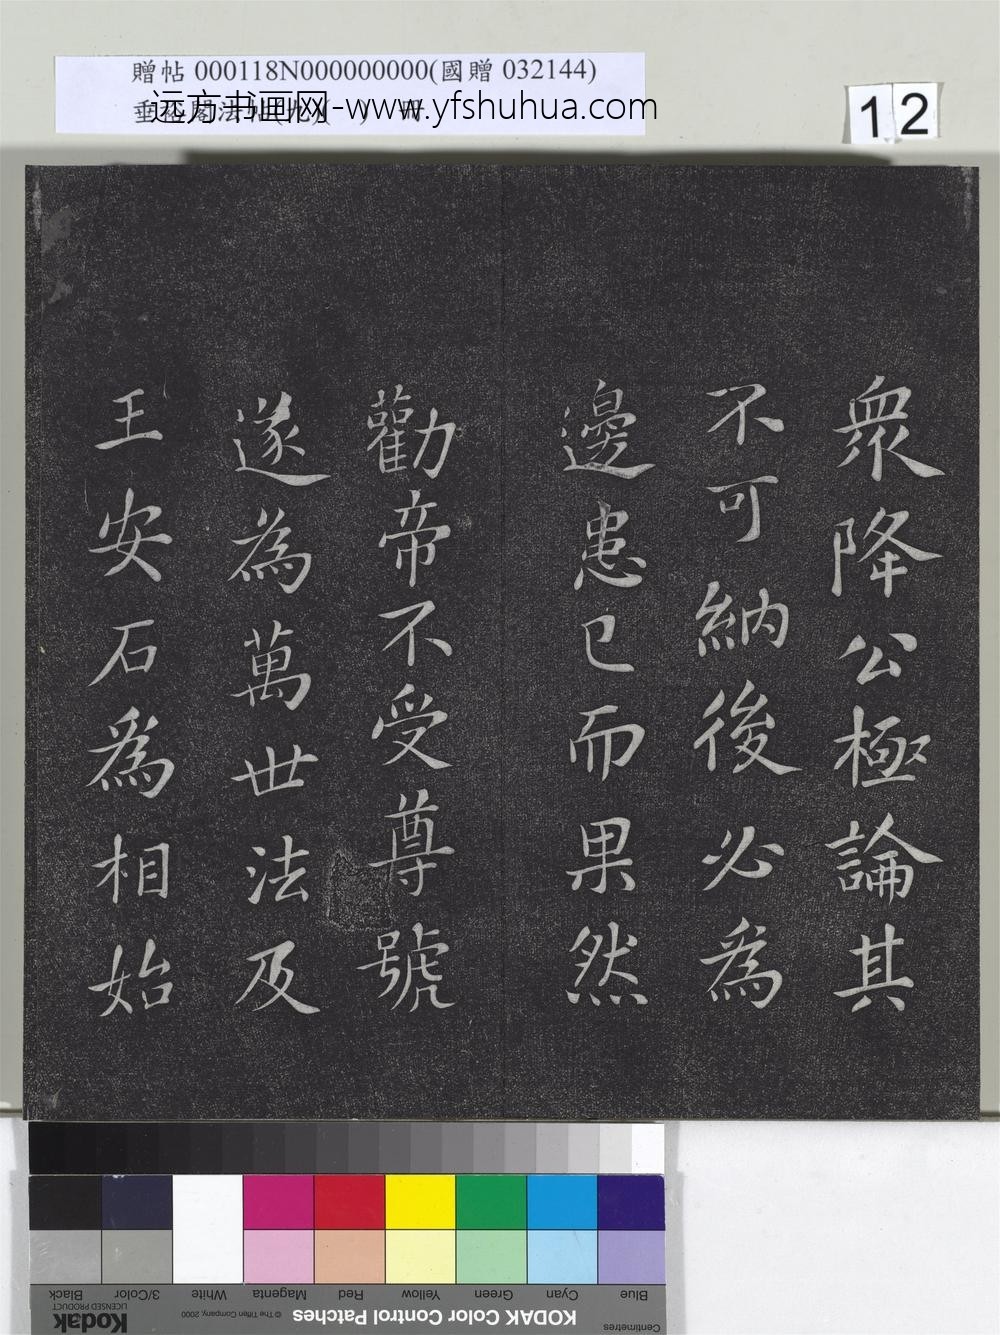 贈帖 000118N000000000(國贈 032144)
远方书画网-www.yfshuhua.com
12
衆降公極論其
不可納後必為
邊患已而果然
勸帝不受尊號
遂為萬世法及
王安石爲相始
Blue
Cyan
Green
Yellow
Red
Magenta
White
3/Color
Black
Centimetres
KODAK Color Control Patches
© The Tiffen Company, 2000
Kodak
LICENSED PRODUCT